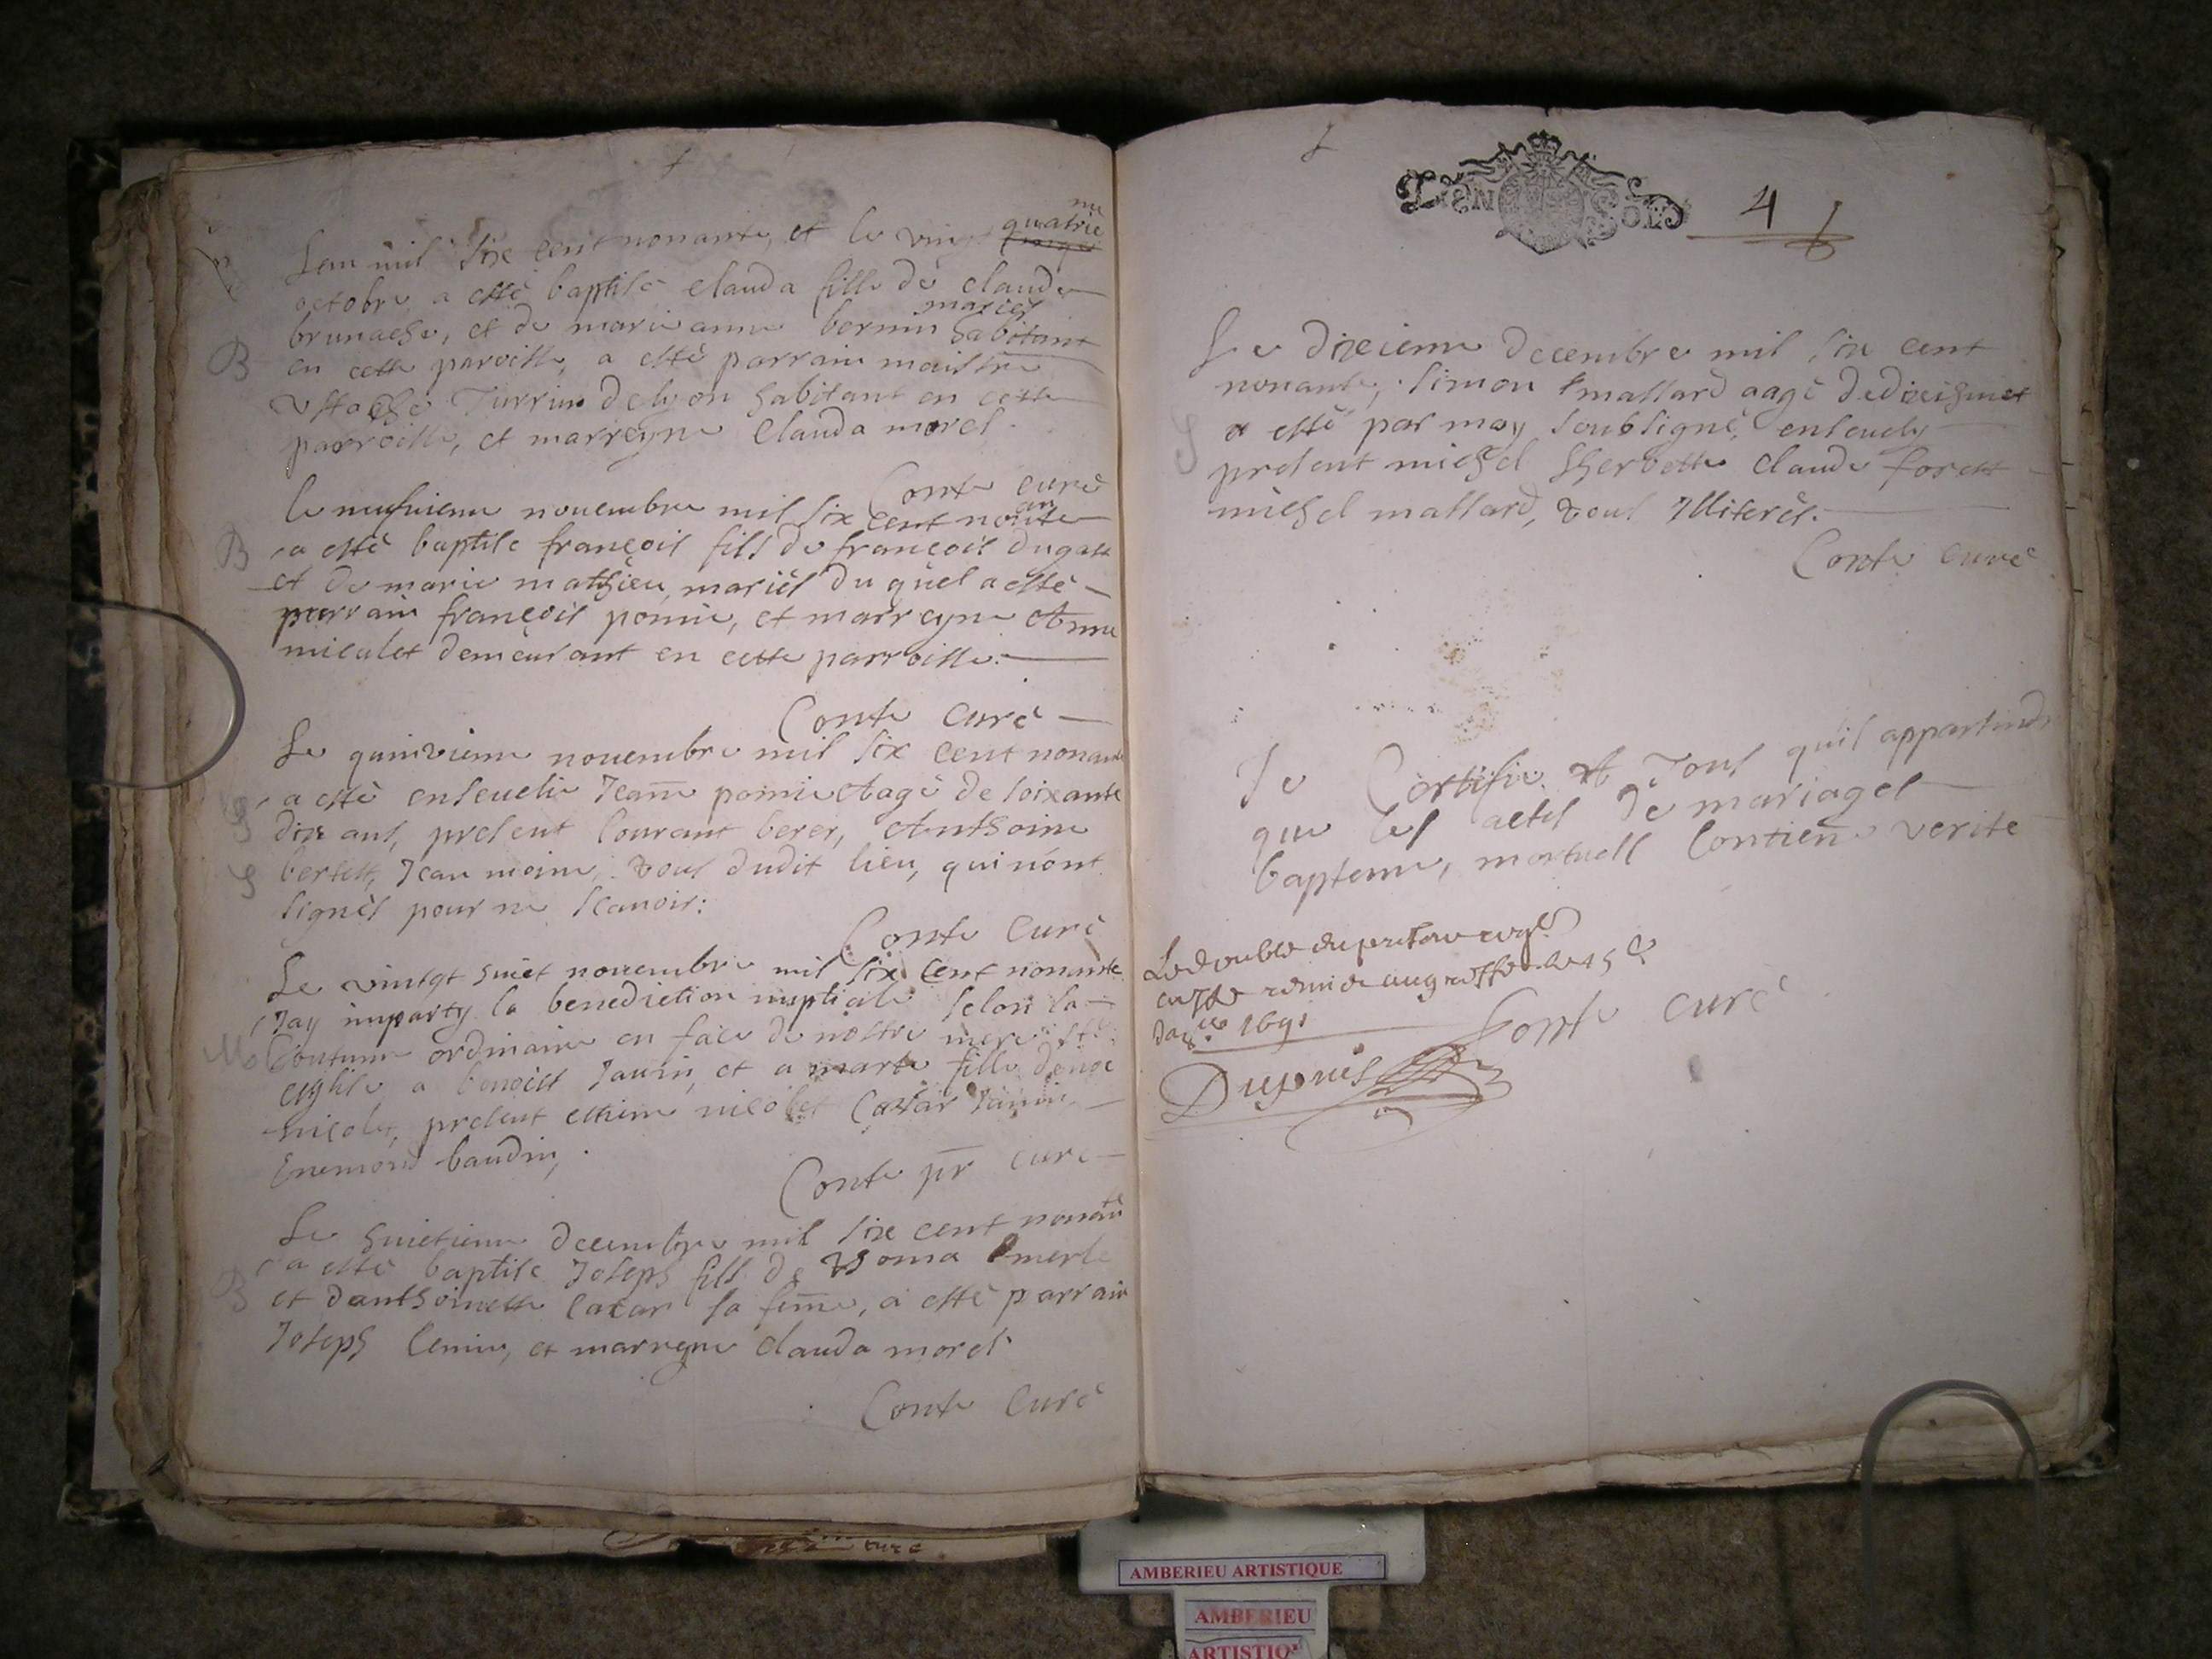 Lan mil six cent nonante, et le vingt quatrie
me
octobre a esté baptisé clauda fille de claude
brunache, et de marie anne bernin mariés habitant
B en cette paroisse, a esté parrain maistre
Turrin de lyon habitant en cette
parroisse, et marreyne Clauda morel.
Conte curé
le neufuieme nouembre mil six cent nonante
B a esté baptise françois fils de françois dugast
et de marie mathieu mariés du quel a esté
parrain françois pomie, et marreyne Anne
micalet demeurant en cette parroisse.
Conte Curé
Le quinzieme nouembre mil six cent nonante
S a esté enseuelie Jeanne pomie Aagé de soixante
dix ans, present Courant berer, Anthoine
S bertet, Jean moine, tous dudit lieu, qui nont
signés pour ne scauoir:
Conte Curé
Le vintgt huiet nouembre mil six Cent nonante
Jay imparty la benediction nuptiale selon la
M Coutume ordinaire en face de nostre mere Ste
esglise a benoist Janin, et a marte fille de
nicolet, present ettiene nicolet Janin
Enemond baudin,
Conte pr curé
Le huietieme decembre mil six cent nonante
B a esté baptisé Joseph fils de Toma merle
et danthoinette lacar sa feme, a esté parrain
Joseph Cenin, et marreyne clauda morel
Conte Curé
TISN SOLS
4
Le dixieme decembre mil six cent
nonante, Simon mallard aagé de dixehuiet
S a esté par moy soubsigné, enseuely
present michel Gherbette Claude forest
michel mallard, tous Illiterés.
Conte Curé
Je Certifie A Tous quil appartiendr
que les actes de mariages
bapteme, mortuels Contiene verite
Conte curé
Le double du present regre
a este remis au greffe le 15e
1691
Dupuis
curé
AMBERIEU ARTISTIQUE
AMBERIEU
ARTISTIQ